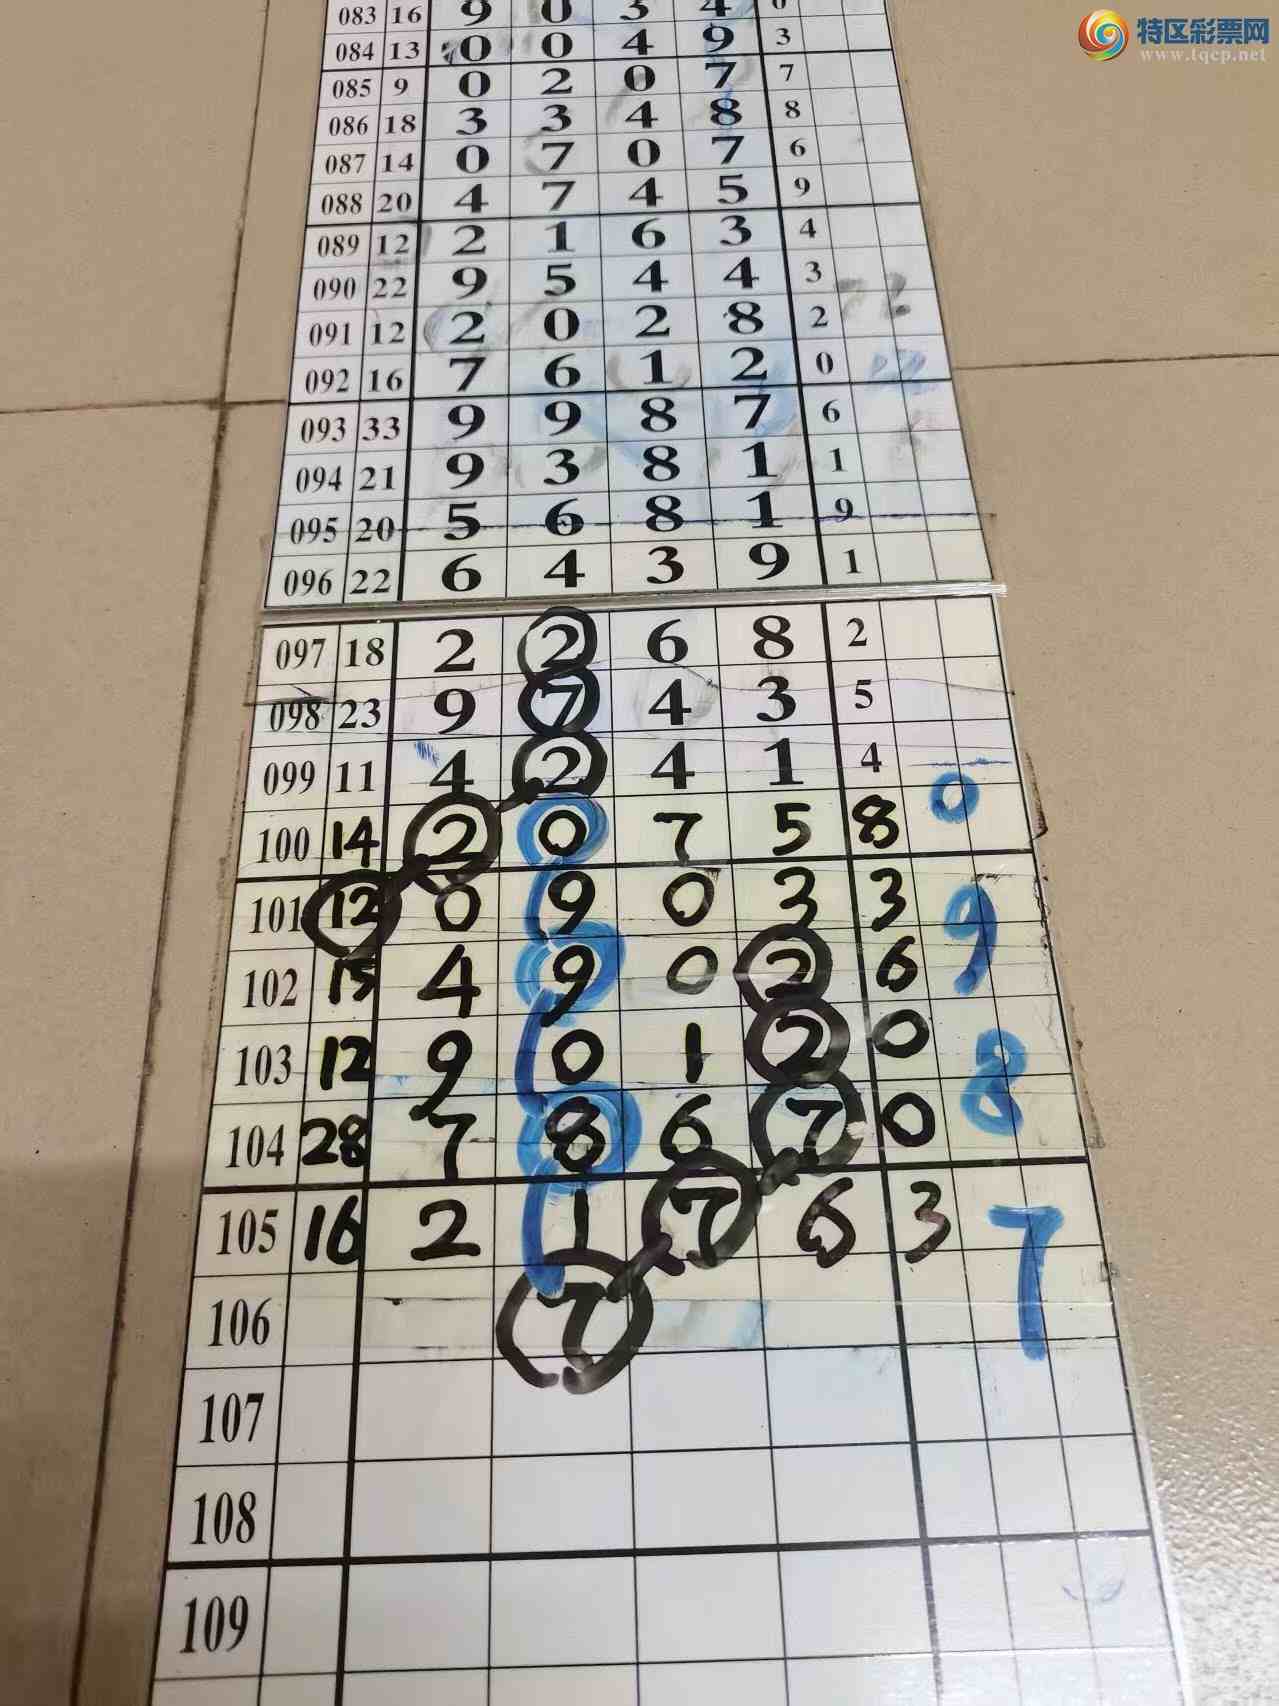 特区彩票网
www.tqcp.net
083 16 9 0 3 4 0
084 13 0 0 4 9 3
085 9 0 2 0 7 7
086 18 3 3 4 8 8
087 14 0 7 0 7 6
088 20 4 7 4 5 9
089 12 2 1 6 3 4
090 22 9 5 4 4 3
091 12 2 0 2 8 2
092 16 7 6 1 2 0
093 33 9 9 8 7 6
094 21 9 3 8 1 1
095 20 5 6 8 1 9
096 22 6 4 3 9 1
097 18 2 2 6 8 2
098 23 9 7 4 3 5
099 11 4 2 4 1 4
100 14 2 0 7 5 8 0
101 12 0 9 0 3 3 9
102 15 4 9 0 2 6
103 12 9 0 1 2 0 8
104 28 7 8 6 7 0
105 16 2 1 7 6 3 7
106 7
107
108
109